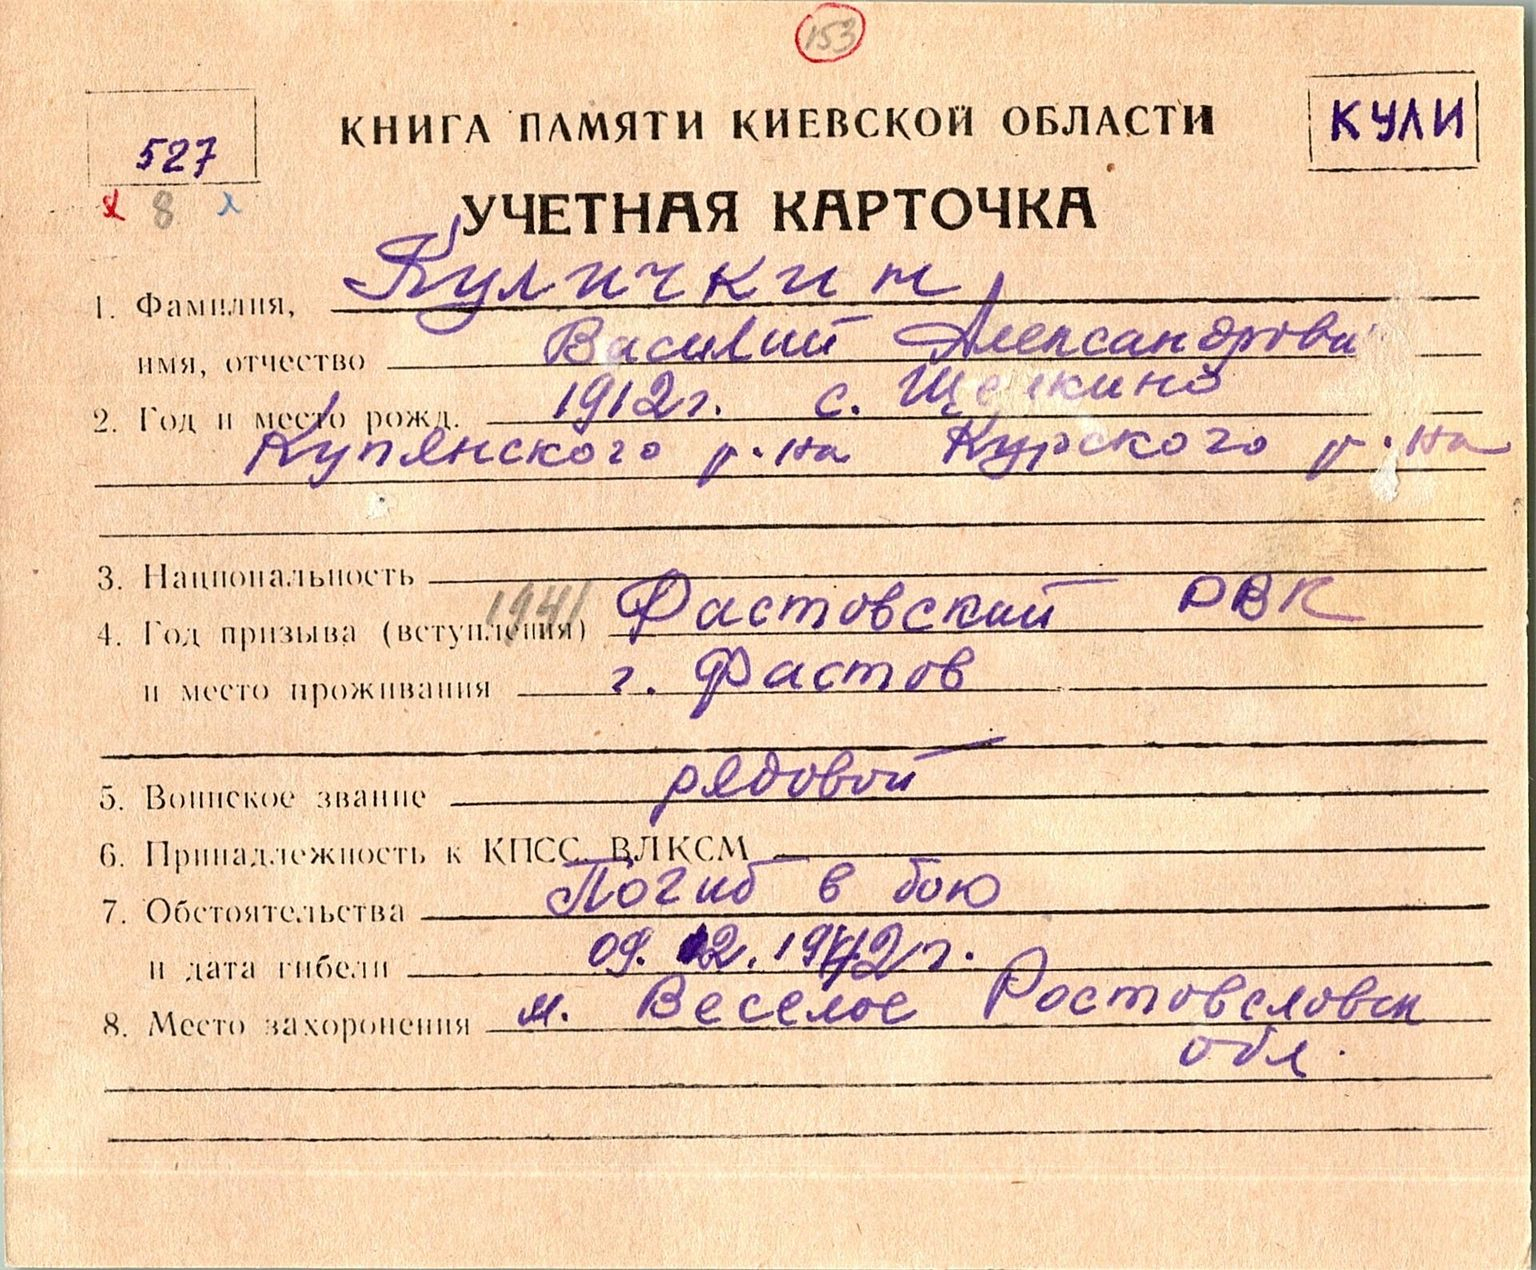 153
527
КНИГА ПАМЯТИ КИЕВСКОЙ ОБЛАСТИ
КУЛИ
8
УЧЕТНАЯ КАРТОЧКА
1. Фамилия, Куличкин
имя, отчество Василий Александрови
2. Год и место рожд. 1912г. с. Щелкино
Купянского р-на Курского р-на
3. Национальность
4. Год призыва (вступления) 1941 Фастовский РВК
и место проживания г. Фастов
5. Воинское звание рядовой
6. Принадлежность к КПСС, ВЛКСМ
7. Обстоятельства Погиб в бою
и дата гибели 09. 12. 1942г.
8. Место захоронения м. Веселое
обл.